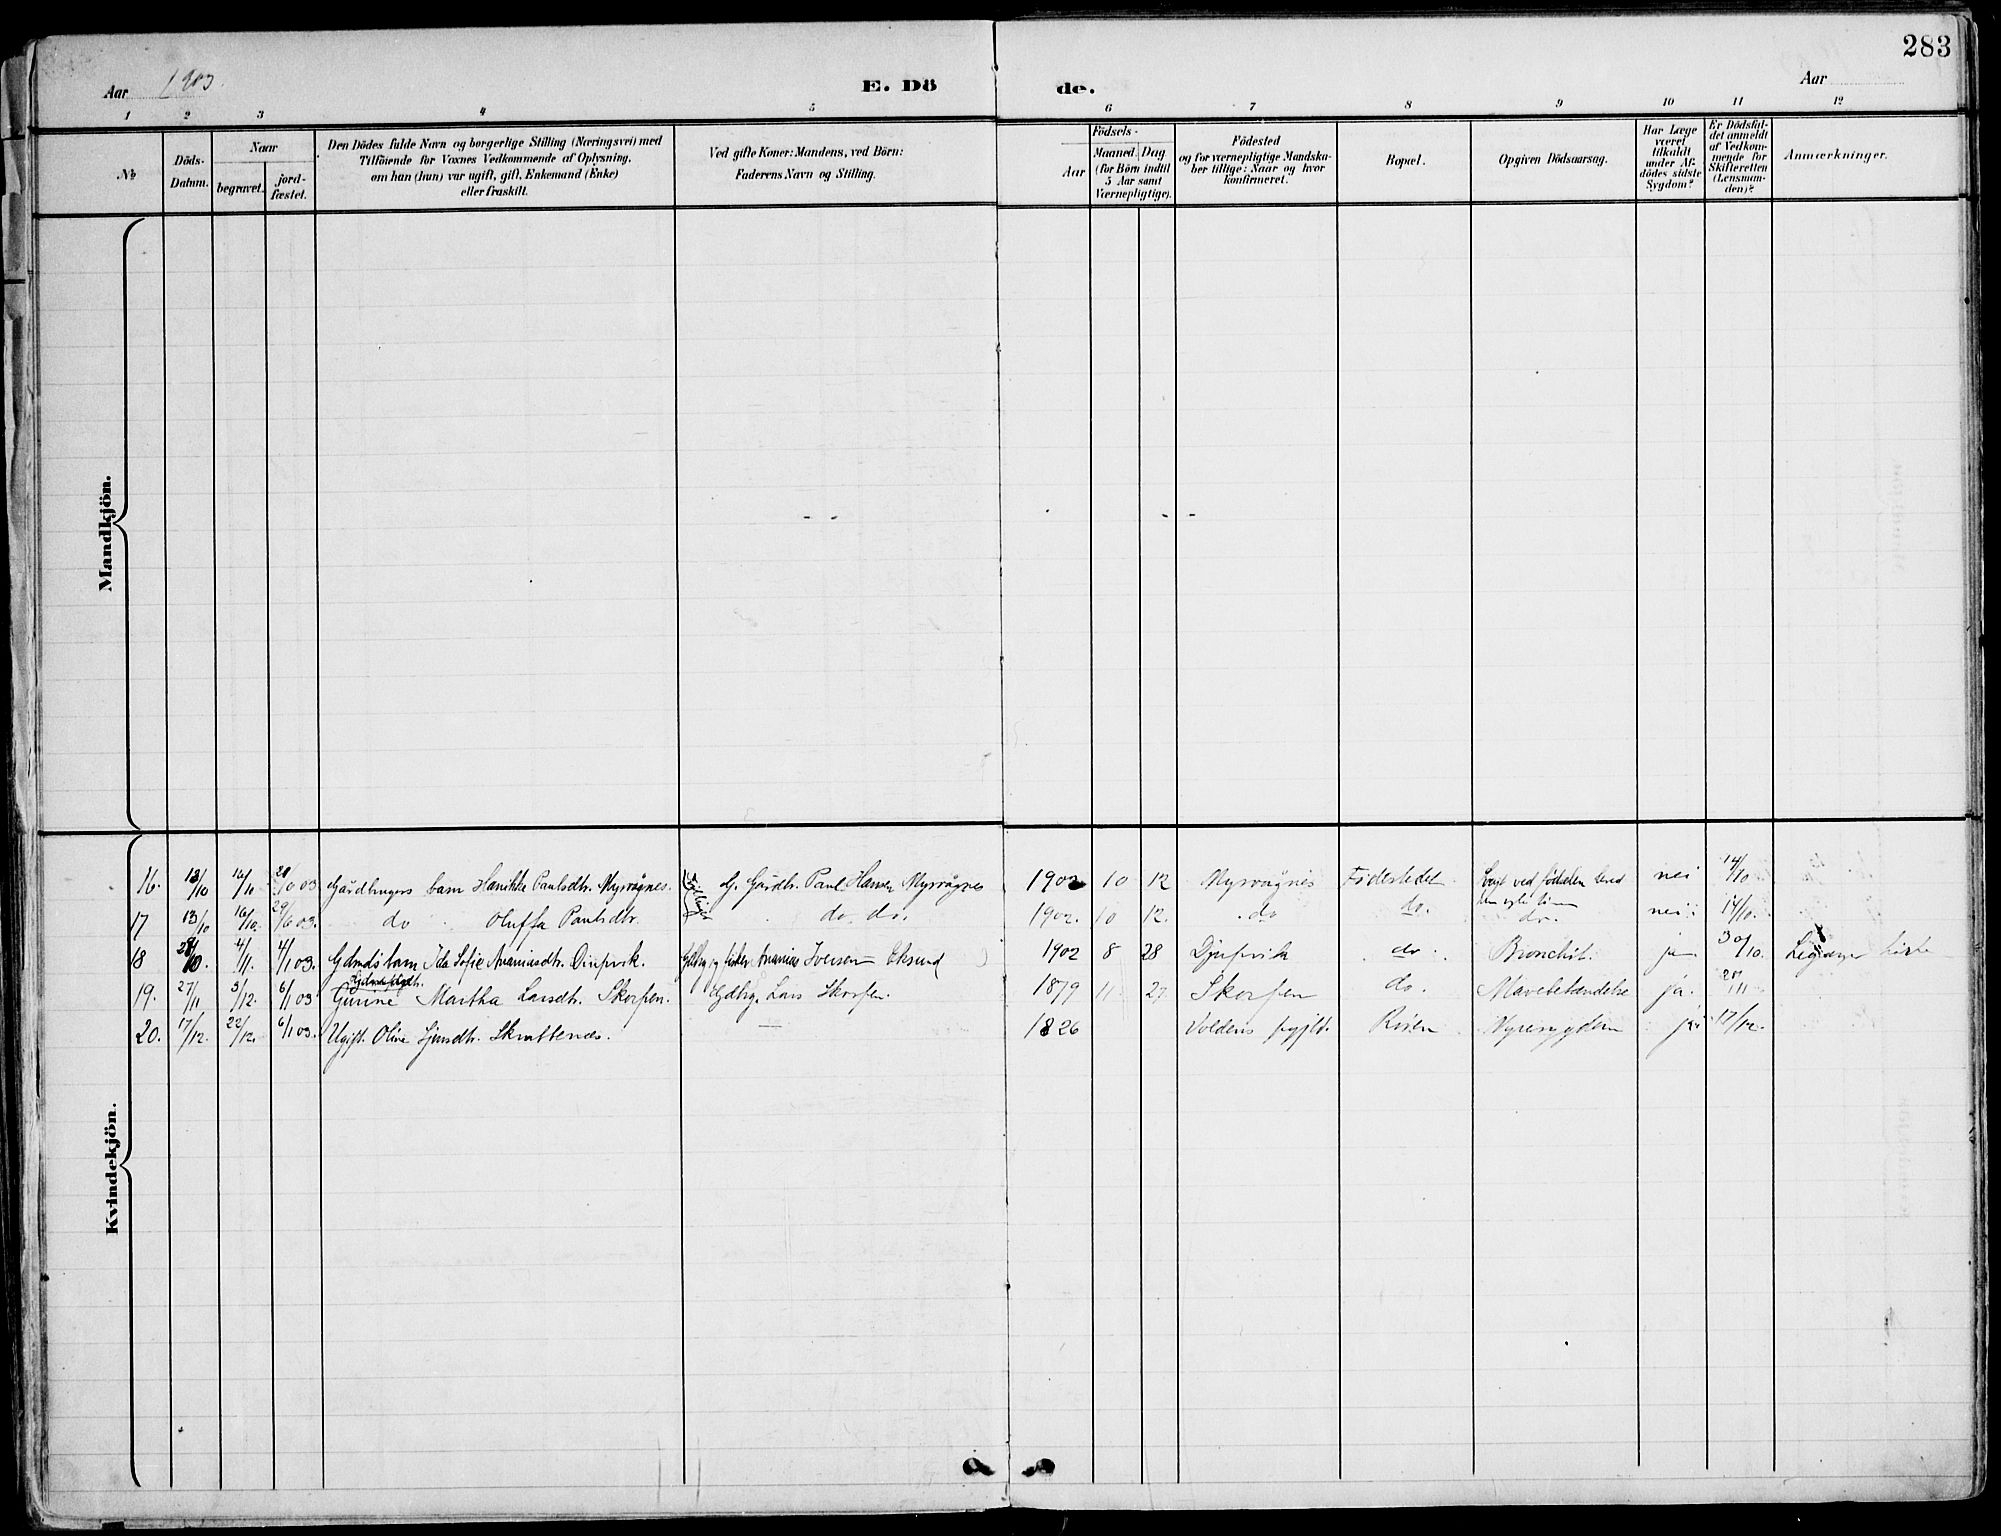 283
Aar 1903. E. Dö de. Aar
1 2 3 4 5 6 7 8 9 10 11 12
№
Döds-Datum.
Naar
begravet.
jord-fæstet.
Den Dödes fulde Navn og borgerlige Stilling (Næringsvei) med
Tilföiende for Voxnes Vedkommende af Oplysning,
om han (hun) var ugift, gift, Enkemand (Enke)
eller fraskilt.
Ved gifte Koner: Mandens, ved Börn:
Faderens Navn og Stilling.
Födsels-
Aar
Maaned. Dag
(for Börn indtil
5 Aar samt
Værnepligtige).
Födested
og for værnepligtige Mandska-
ber tillige: Naar og hvor
konfirmeret.
Bopæl.
Opgiven Dödsaarsag.
Har Læge
været
tilkaldt
under Af-
dödes sidste
Sygdom?
Er Dödsfal-
det anmeldt
af Vedkom-
mende for
Skifteretten
(Lensman-
den)?
Anmærkninger.
Mandkjön.
Kvindekjön.
16. 13/10 16/10 03 barn Paulsdtr. Myrvågnes. Paul Hansen Myrvågnes 1902 10 12 Myrvågnes Fødestedet Svagt ved fødselen nei 14/10
17 13/10 16/10. 03. do Oluffa Paulsdtr. do. do. 1902. 10 12. do do. do. nei 14/10.
18 28/10. 4/11. 4/1 03. Gdmds barn Ida Sofie Ananiasdtr. Djupvik. Ananias Iversen Eksund 1902 8 28 Djupvik do. Bronchit. ja 30/10.
19. 27/11 3/12. 6/1 03 Gurine Martha Larsdtr. Skorpen. Gdbrg. Lars Skorpen. 1879 11 27 Skorpen do. Mavebetændelse ja. /11
20. 17/12. 22/12. 6/1 03. Ugift. Oline Skrattenæs. 1826 Voldens prgjld. Nyresygdom ja 17/12.